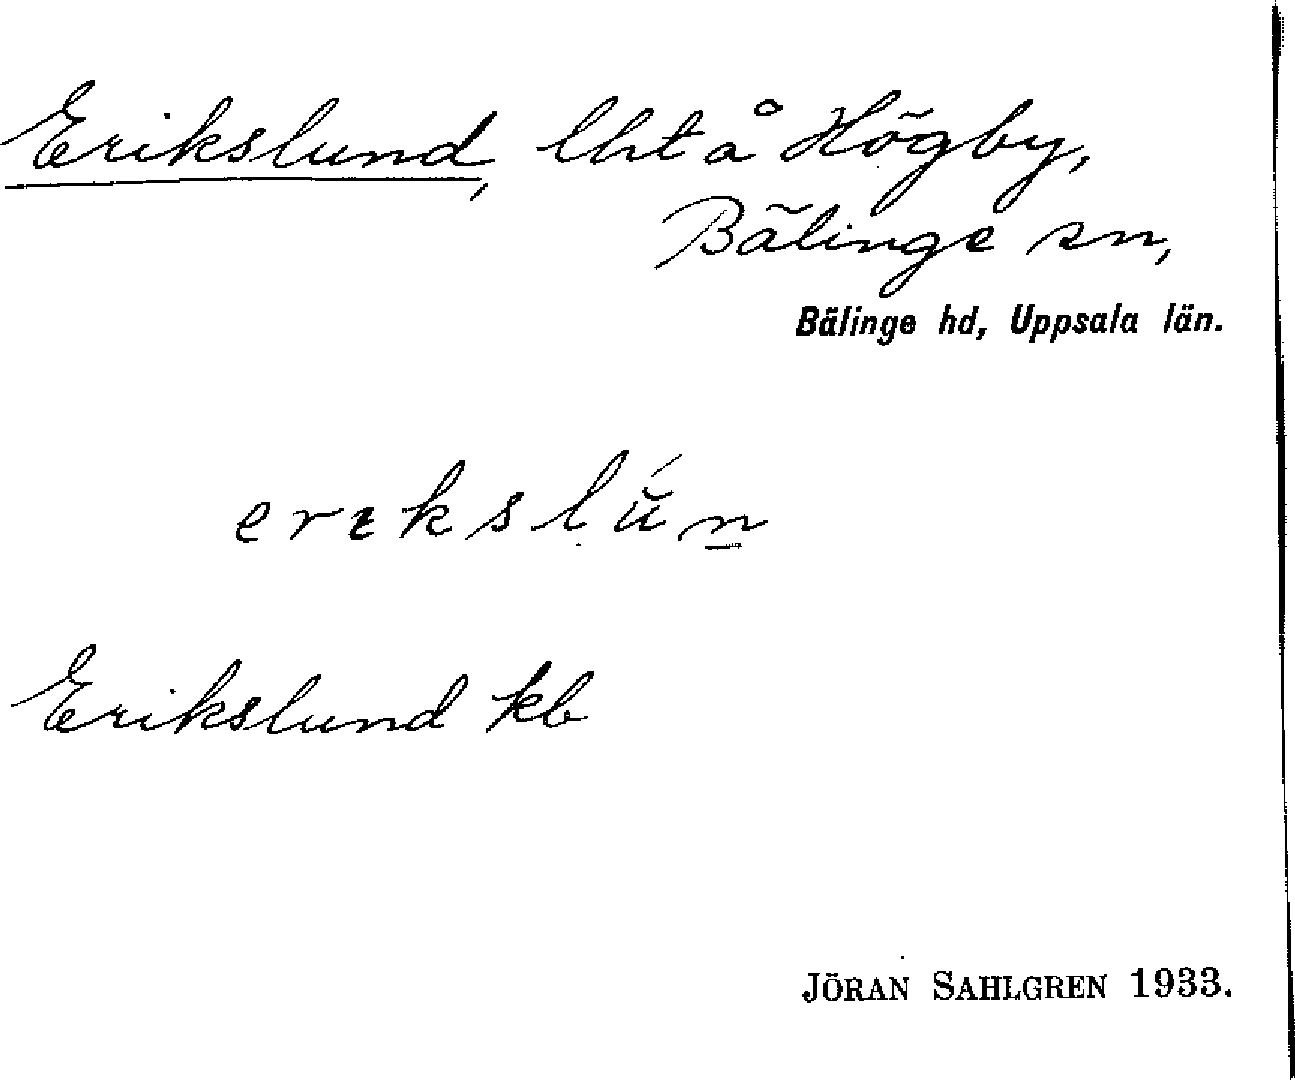 Erikslund, lht å Högby,
Bälinge sn,
Bälinge hd, Uppsala län.
erɩkslŭ́n̲
Erikslund kb
JÖRAN SAHLGREN 1933.